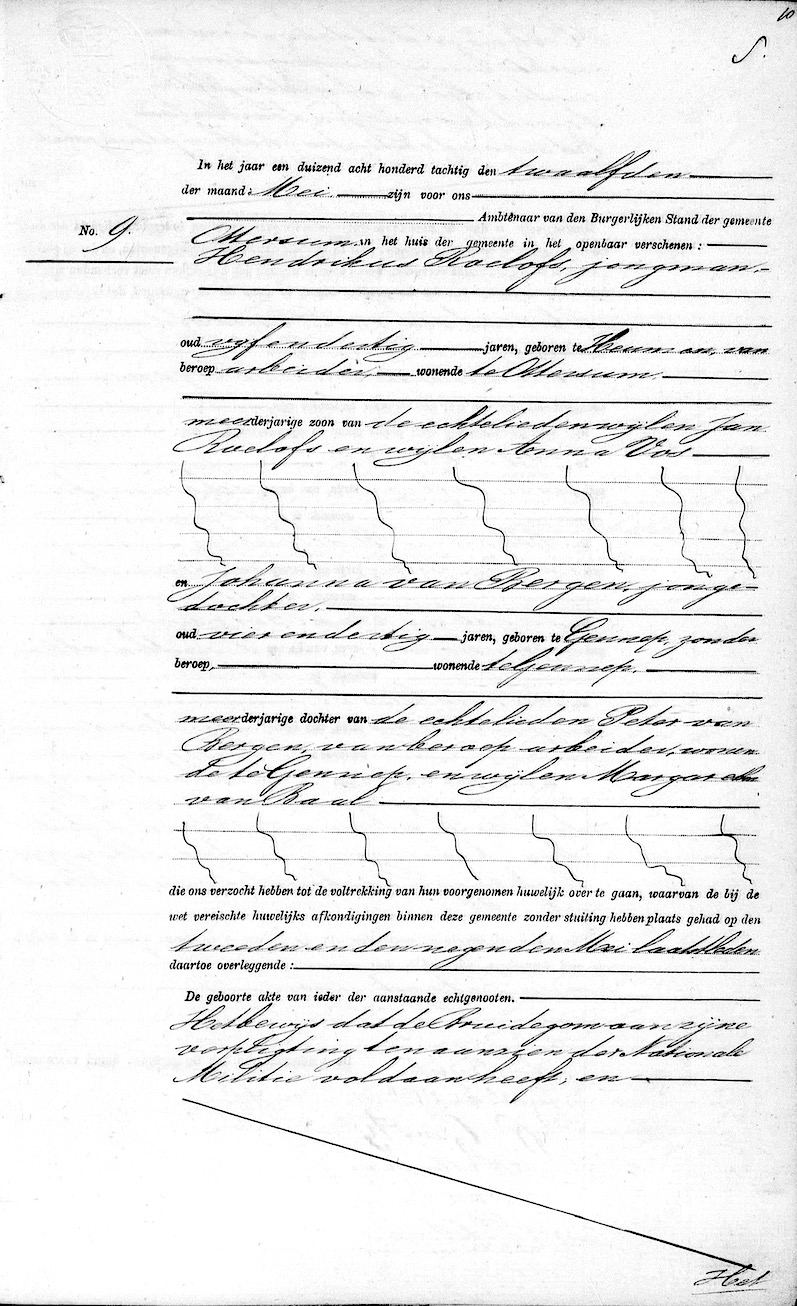 10
S.
In het jaar een duizend acht honderd tachtig den twaalfden
der maand Mei zijn voor ons
Ambtenaar van den Burgerlijken Stand der gemeente
No. 9.
Ottersum in het huis der gemeente in het openbaar verschenen :
Hendrikus Roelofs, jongman.
oud vyfendertig jaren, geboren te Heumen, van
beroep arbeider, wonende te Ottersum.
meerderjarige zoon van de echtelieden wijlen Jan
Roelofs en wijlen Anna Vos
en Johanna van Bergen, jonge-
dochter.
oud vierendertig jaren, geboren te Gennep, zonder
beroep, wonende te Gennep.
meerderjarige dochter van de echtelieden Peter van
Bergen, van beroep arbeider, wonen
de te Gennep, en wijlen Margaretha
van Baal
die ons verzocht hebben tot de voltrekking van hun voorgenomen huwelijk over te gaan, waarvan de bij de
wet vereischte huwelijks afkondigingen binnen deze gemeente zonder stuiting hebben plaats gehad op den
tweeden en den negenden Mei laatstleden
daartoe overleggende :
De geboorte akte van ieder der aanstaande echtgenooten.
Het bewijs dat de Bruidegom aan zijne
verpligting ten aanzien der Nationale
Militie voldaan heeft, en
Het